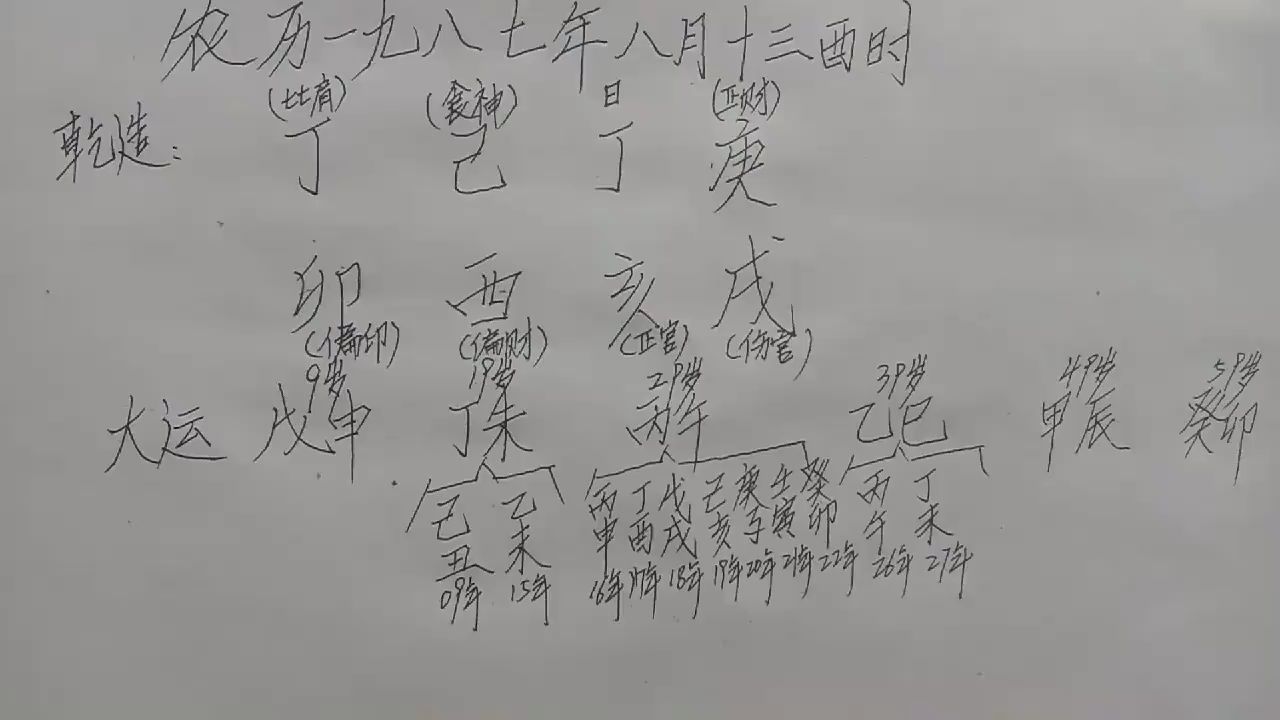 农历一九八七年八月十三酉时
(比肩) (食神) 日 (正财)
乾造: 丁 己 丁 庚
卯 酉 亥 戌
(偏印) (偏财) (正官) (伤官)
9岁 19岁 29岁 39岁 49岁 59岁
大运 戊申 丁未 丙午 乙巳 甲辰 癸卯
己 乙 丙 丁 戊 己 庚 壬 癸 丙 丁
丑 未 申 酉 戌 亥 子 寅 卯 午 未
09年 15年 16年 17年 18年 19年 20年 21年 22年 26年 27年